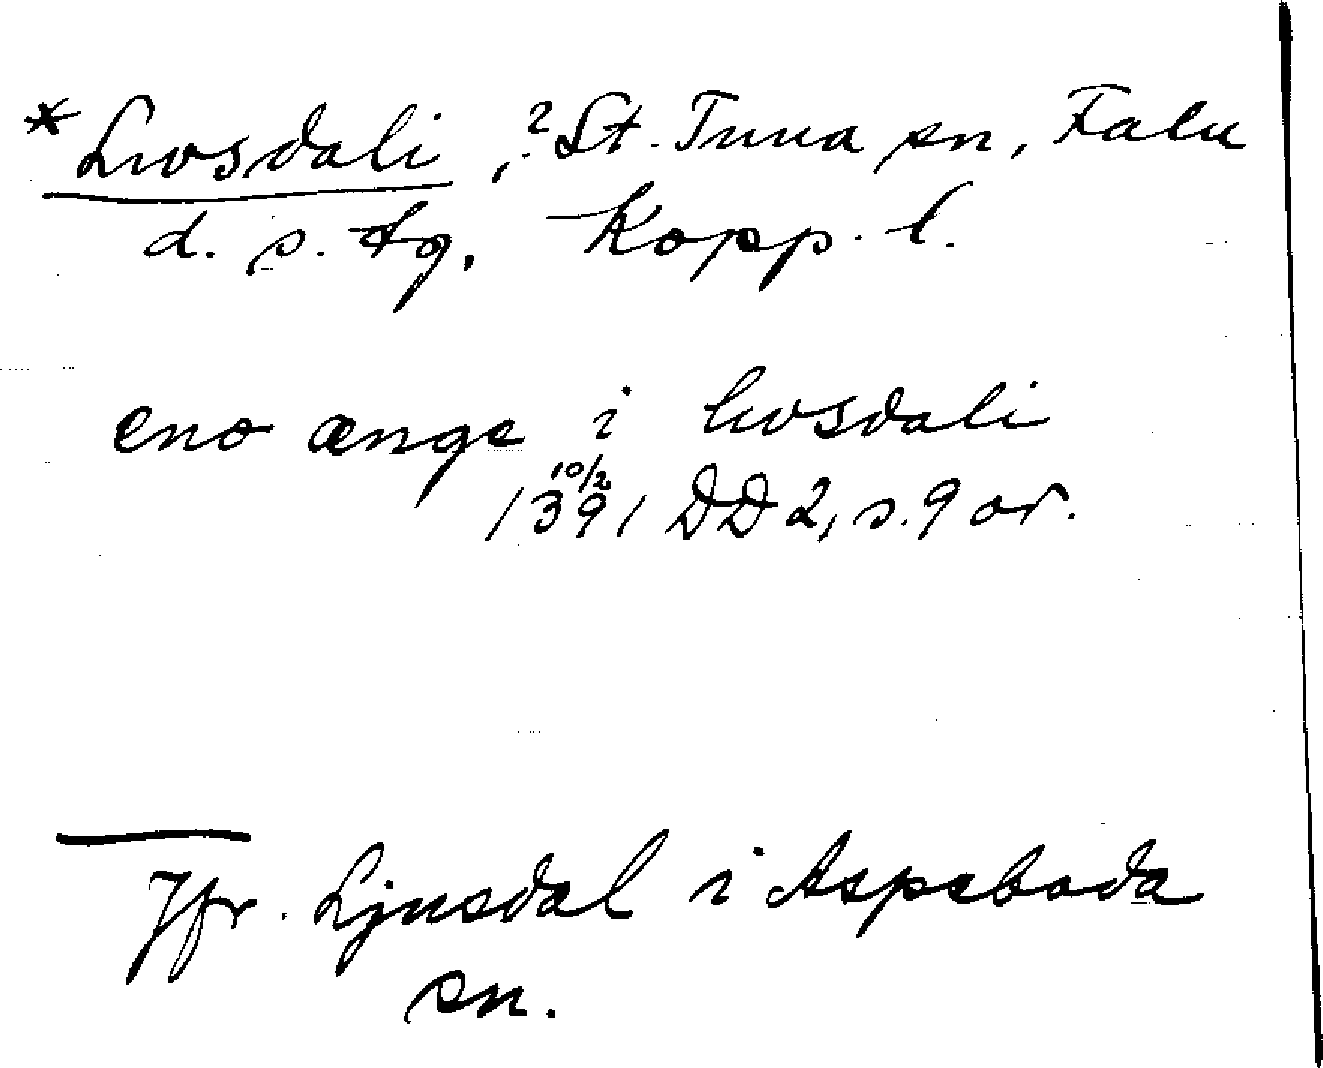 *Lwsdali, ? St. Tuna sn, Falu
d. s. tg, Kopp. l.
eno ænge i lwsdali
10/2
1391 DD 2, s. 9 or.
Jfr. Ljusdal i Aspeboda
sn.